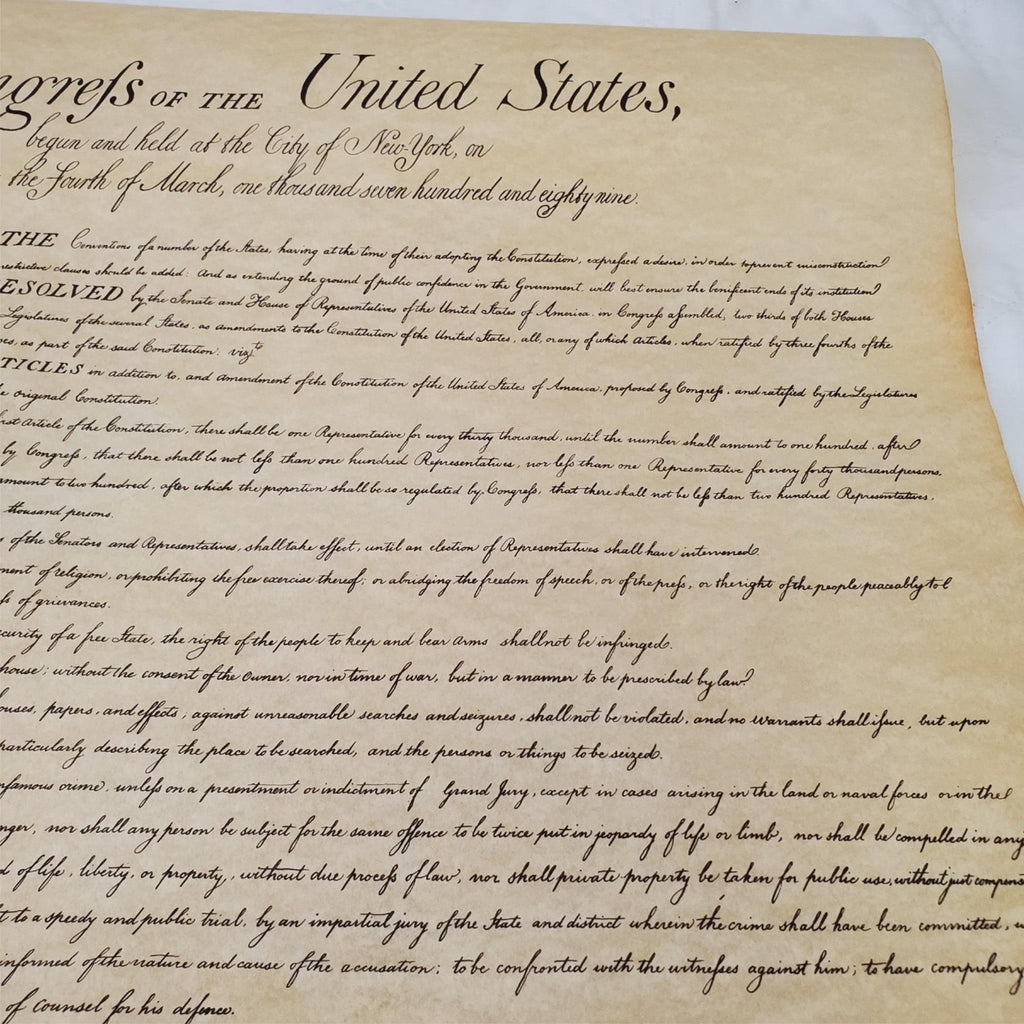 ngreſs OF THE United States,
begun and held at the City of New-York, on
the Fourth of March, one thousand seven hundred and eighty nine.
THE Conventions of a number of the States, having at the time of their adopting the Constitution, expreſsed a desire, in order to prevent misconstruction
restrictive clauses should be added: And as extending the ground of public confidence in the Government, will best ensure the benificent ends of its institution
ESOLVED by the Senate and House of Representatives of the United States of America, in Congreſs aſsembled, two thirds of both Houses
Legislatures of the several States, as amendments to the Constitution of the United States, all, or any of which Articles, when ratified by three fourths of the
es, as part of the said Constitution; vizt
TICLES in addition to, and Amendment of the Constitution of the United States of America, proposed by Congreſs, and ratified by the Legislatures
e original Constitution.
irst Article of the Constitution, there shall be one Representative for every thirty thousand, until the number shall amount to one hundred, after
by Congreſs, that there shall be not leſs than one hundred Representatives, nor leſs than one Representative for every forty thousand persons,
amount to two hundred, after which the proportion shall be so regulated by Congreſs, that there shall not be leſs than two hundred Representatives,
thousand persons.
s of the Senators and Representatives, shall take effect, until an election of Representatives shall have intervened.
ment of religion, or prohibiting the free exercise thereof; or abridging the freedom of speech, or of the preſs, or the right of the people peaceably to
ſs of grievances.
ecurity of a free State, the right of the people to keep and bear Arms shall not be infringed.
house, without the consent of the Owner, nor in time of war, but in a manner to be prescribed by law.
ouses, papers, and effects, against unreasonable searches and seizures, shall not be violated, and no Warrants shall iſsue, but upon
particularly describing the place to be searched, and the persons or things to be seized.
nfamous crime, unleſs on a presentment or indictment of Grand Jury, except in cases arising in the land or naval forces or in the
nger, nor shall any person be subject for the same offence to be twice put in jeopardy of life or limb, nor shall be compelled in any
d of life, liberty, or property, without due proceſs of law, nor shall private property be taken for public use, without just compens
t to a speedy and public trial, by an impartial jury of the State and district wherein the crime shall have been committed,
informed of the nature and cause of the accusation; to be confronted with the witneſses against him; to have compulsory
of counsel for his defence.